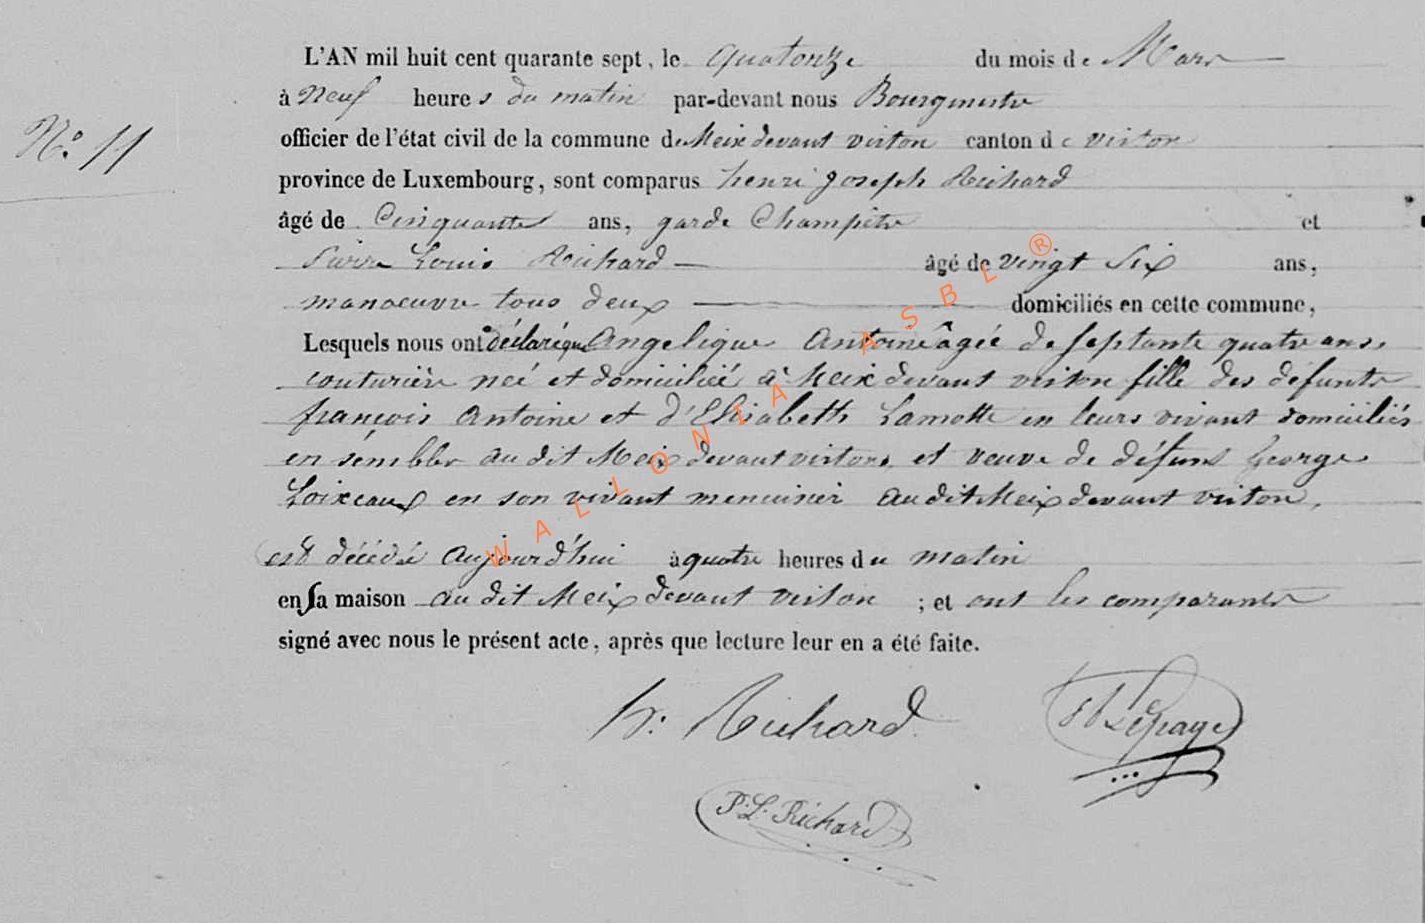 L'AN mil huit cent quarante sept, le quatorze du mois de Mars
à Neuf heures du matin par-devant nous Bourgmestre
N.° 11
officier de l'état civil de la commune de Meix devant virton canton de virton
province de Luxembourg, sont comparus henri joseph Richard
âgé de Cinquante ans, garde Champêtre et
Pierre Louis Richard âgé de vingt Six ans,
manoeuvre tous deux domiciliés en cette commune,
Lesquels nous ont déclaré que Angelique Antoine âgée de septante quatre ans,
couturière neé et domiciliée à Meix devant virton fille des défunts
françois Antoine et d'Elisabeth Lamotte en leurs vivant domiciliés
en sembles au dit Meix devant virton, et veuve de défunt George
Loixeaux en son vivant menuisier au dit Meix devant virton,
est décédé Aujourd'hui à quatre heures du matin
en sa maison au dit Meix devant virton ; et ont les comparants
signé avec nous le présent acte, après que lecture leur en a été faite.
h. Richard
Lepage
P. L. Richard
WALLONIA ASBL ®